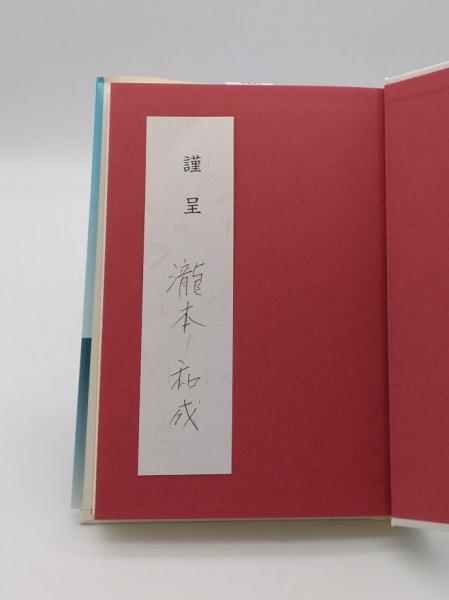 謹呈
瀧本和成